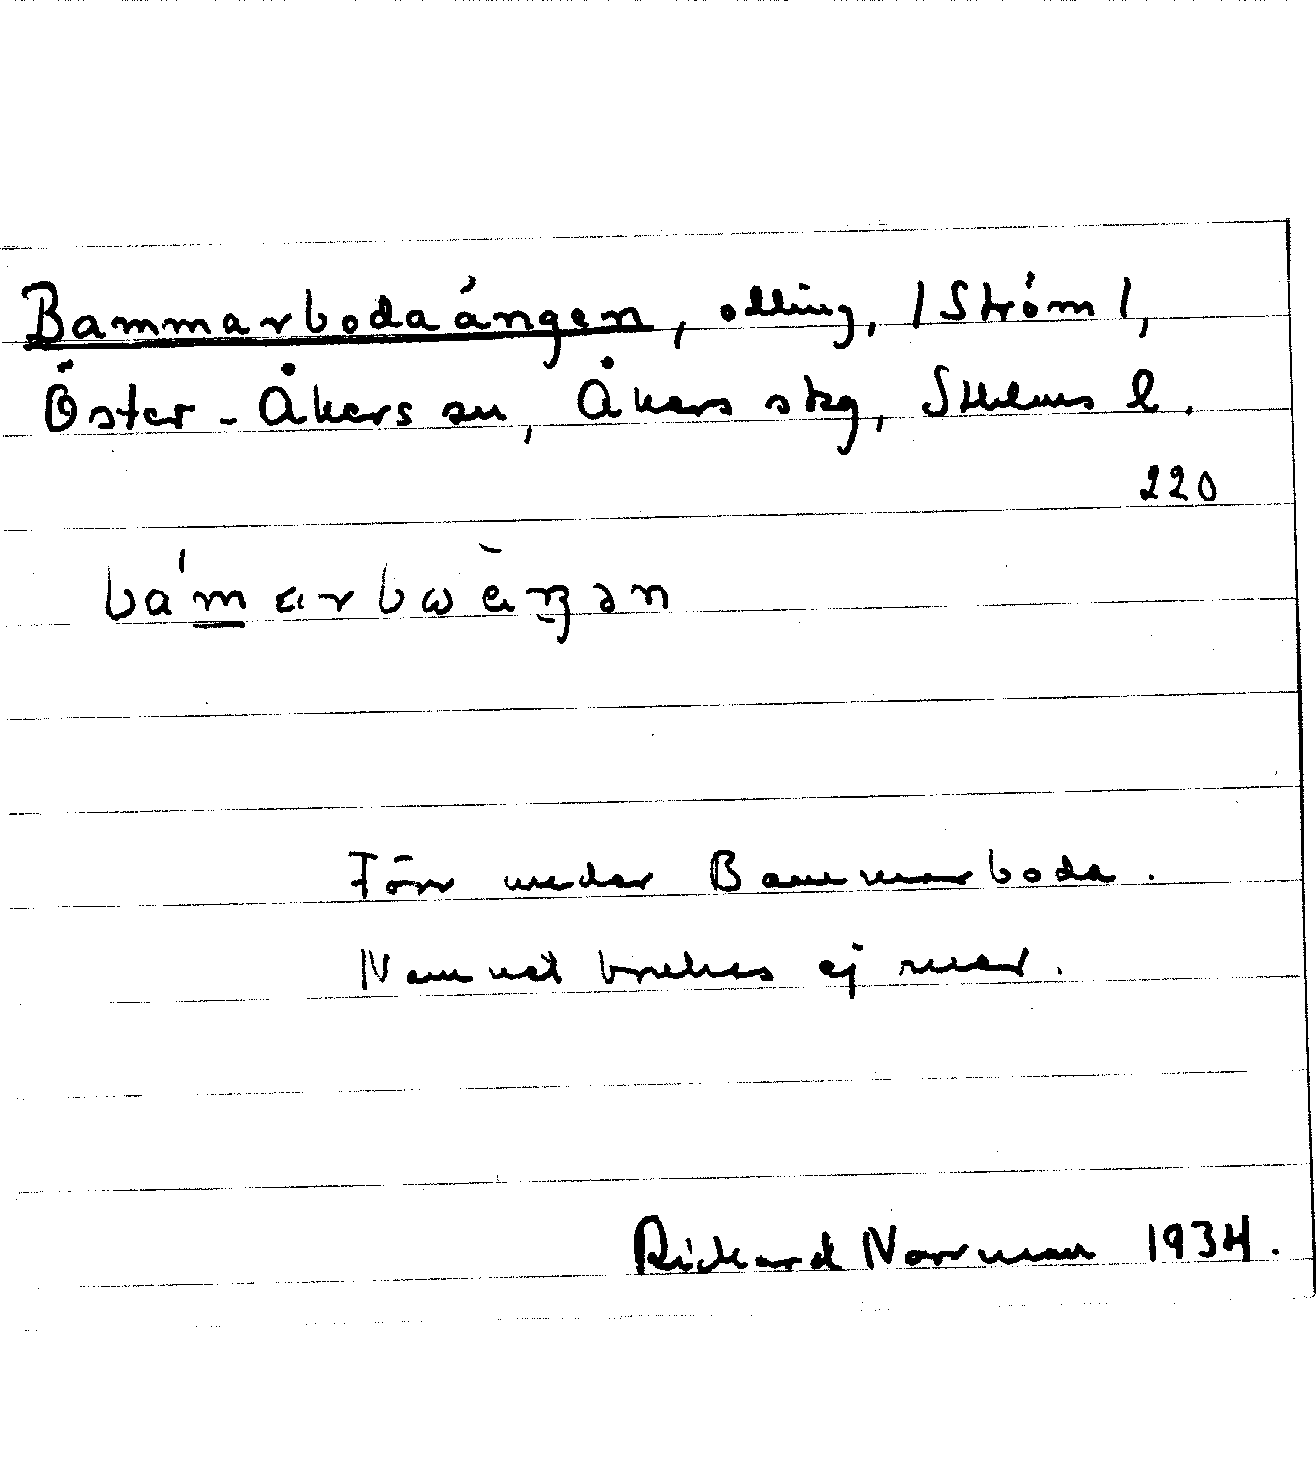 Bammarbodaängen, odling, /Ström/,
Öster-Åkers sn, Åkers skg, Sthlms l.
220
bámarbωὲŋən
Förr under Bammarboda.
Namnet brukas ej mer.
Rickard Norrman 1934.